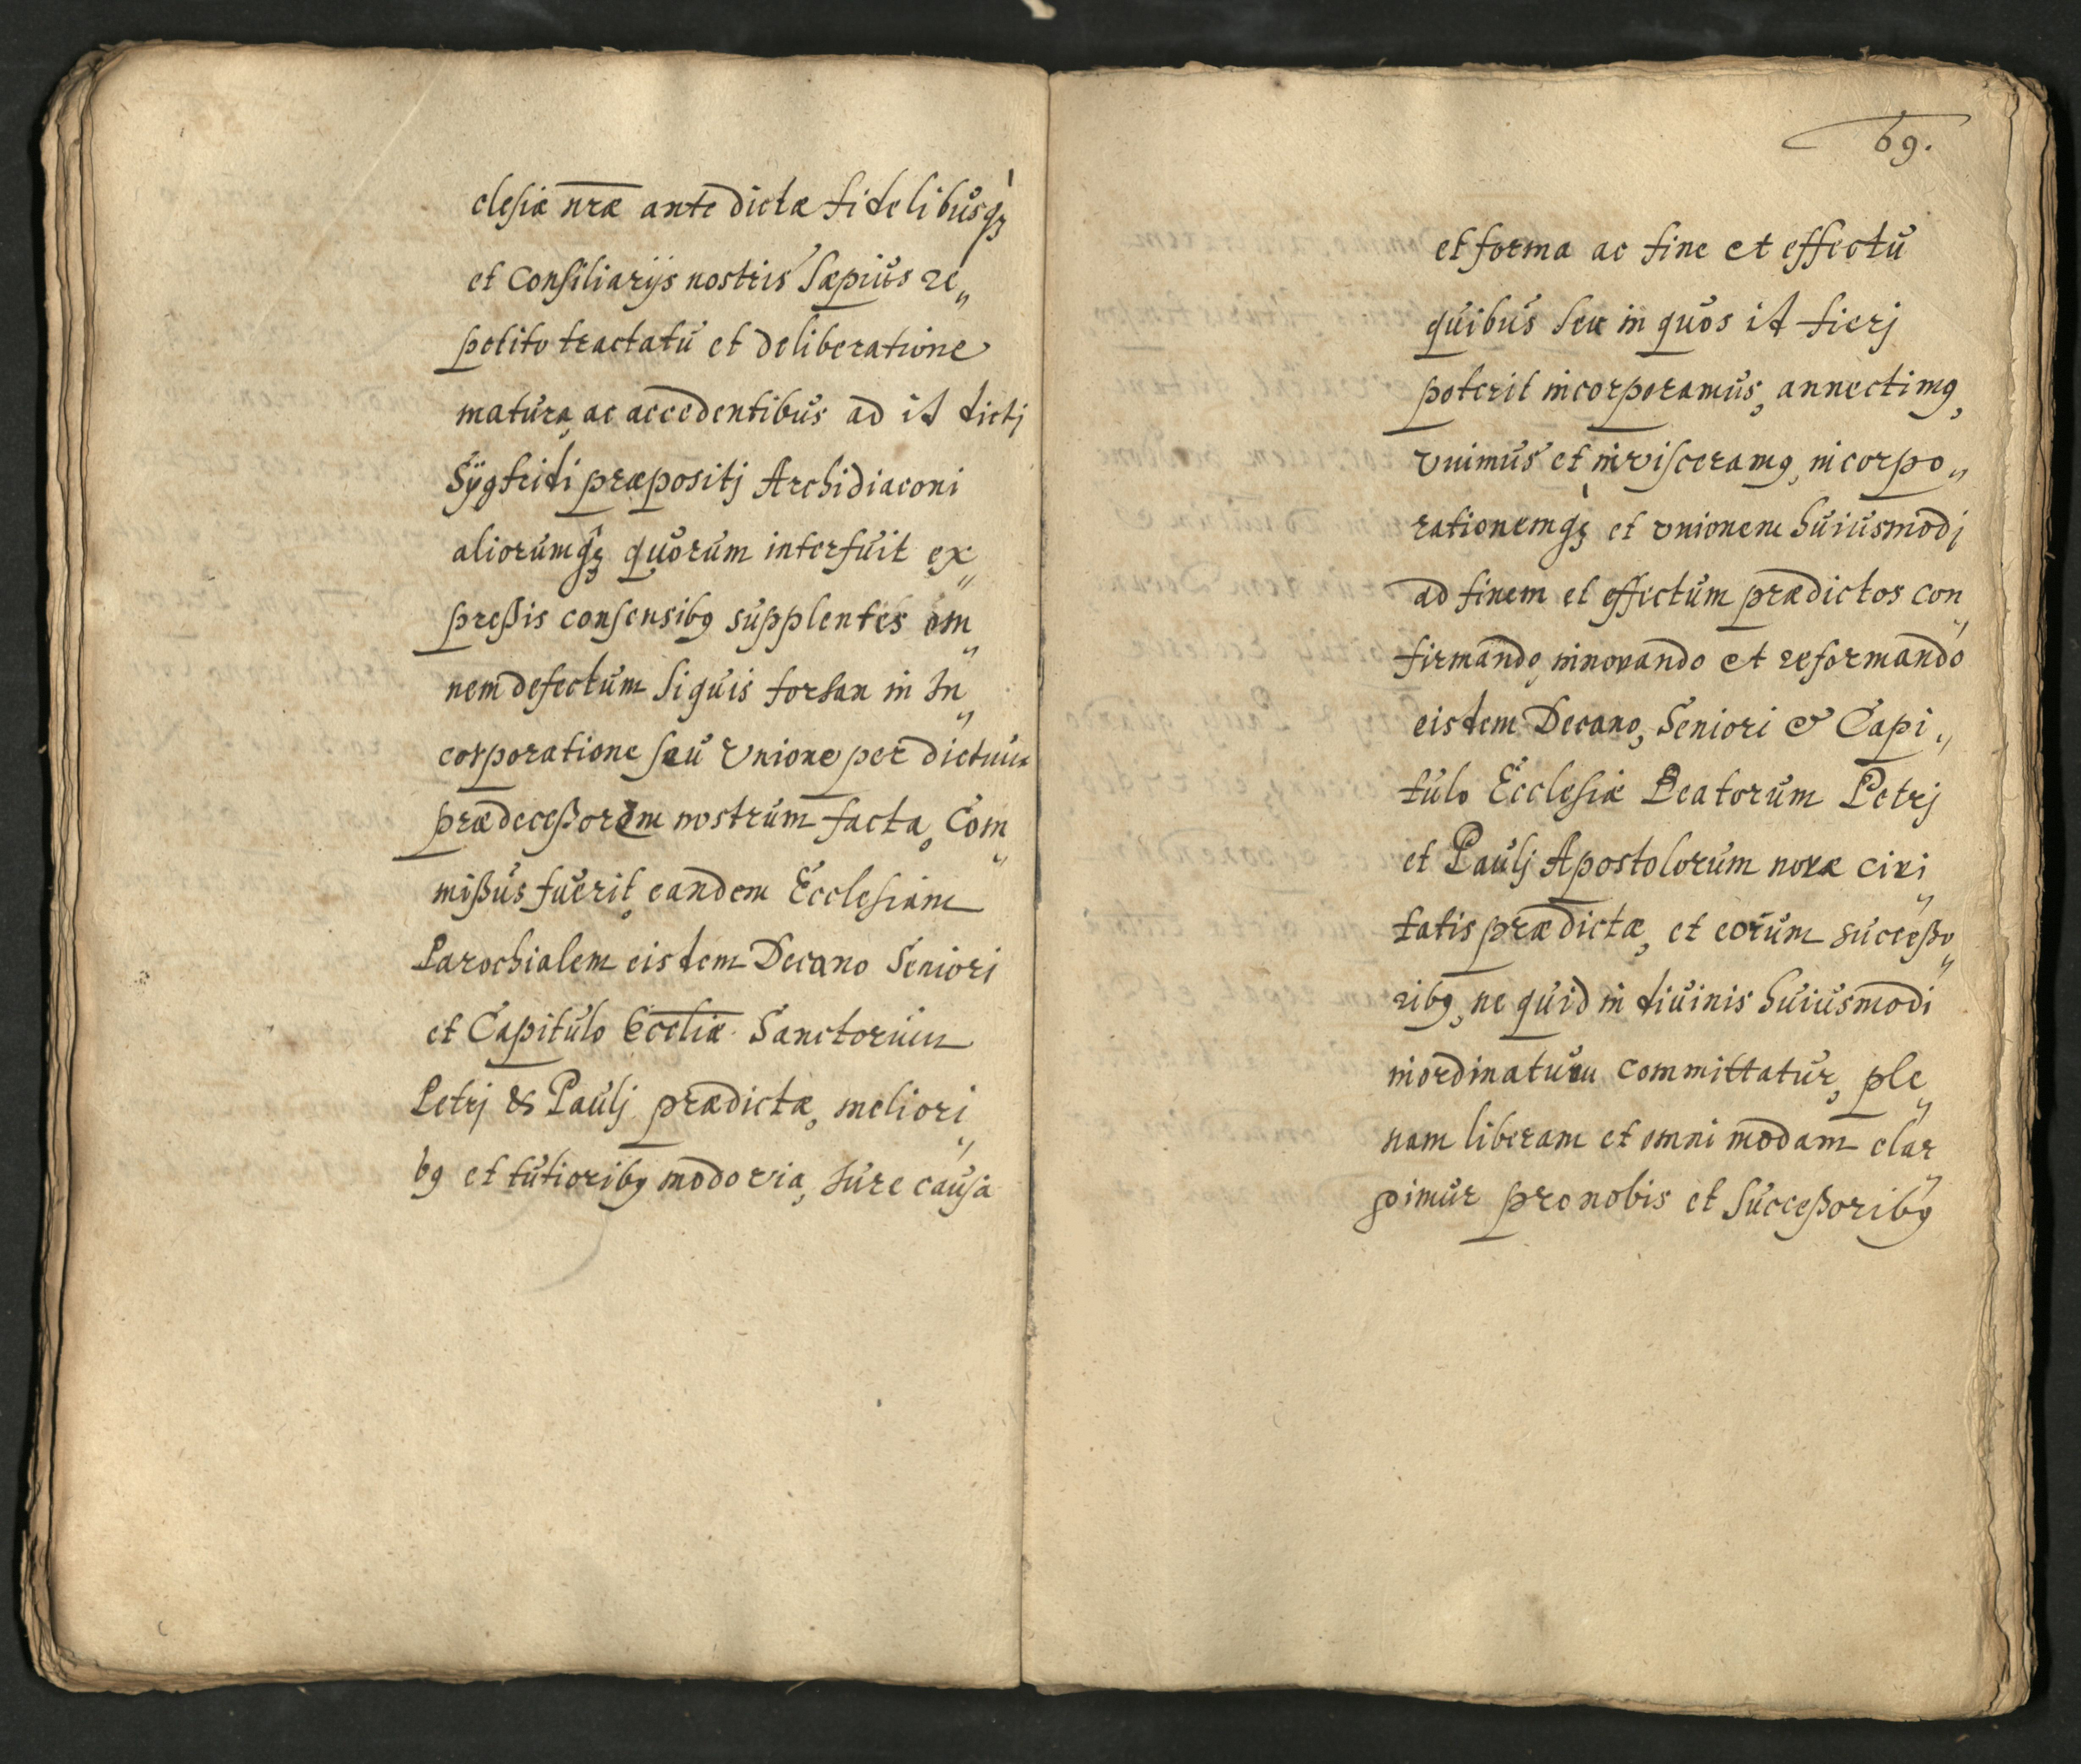 clesiæ nr̄æ antedictæ fidelibusq́ꝫ
et Consiliarijs nostris sæpius re„
petito tractatu et deliberatione
matura, ac accedentibus ad id dictj
Sÿgfridi præpositj Archidiaconi
aliorumq́ꝫ quorum interfuit ex„
preßis consensibꝯ supplentes om„
nem defectum siquis forsan in In„
corporatione seu Vnione per dictum
prædeceßorem nostrum facta, Com„
mißus fuerit, eandem Ecclesiam
Parochialem eisdem Decano Seniori
et Capitulo Eccl̄iæ Sanctorum
Petrj & Paulj prædictæ, meliori„
bꝯ et tutioribꝯ modo via, Iure causa
69.
et forma ac fine et effectu
quibus seu in quos id fierj
poterit incorporamus, annectimꝯ,
vnimus et invisceramꝯ, incorpo„
rationemq́ꝫ et vnionem huiusmodj
ad finem et effectum prædictos con„
firmando, innovando et reformando
eisdem Decano, Seniori & Capi„
tulo Ecclesiæ Beatorum Petrj
et Paulj Apostolorum novæ civi„
tatis prædictæ, et eorum succeßo„
ribꝯ, ne quid in divinis huiusmodi
inordinatum committatur, ple„
nam liberam et omnimodam elar„
gimur pro nobis et Succeßoribꝯ